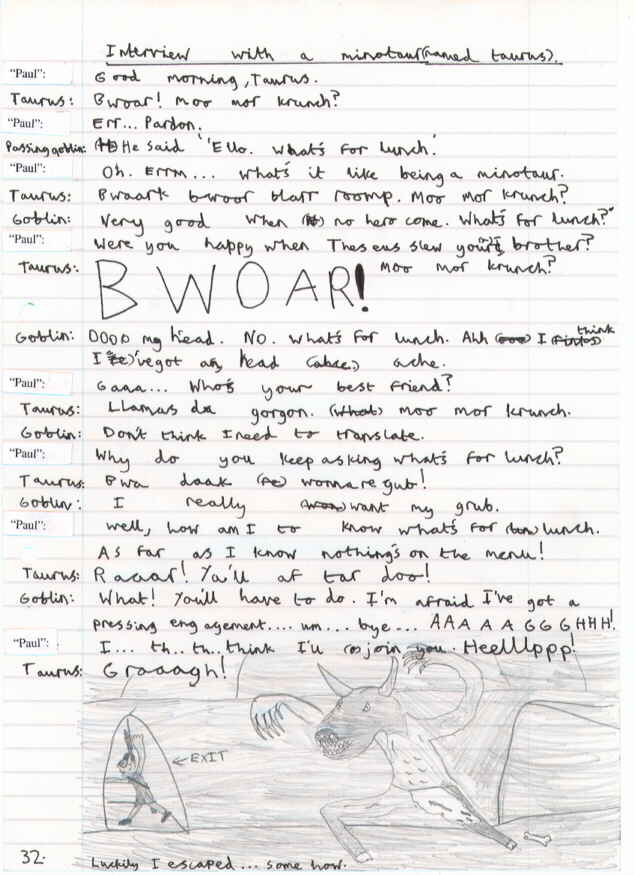 Interview with a minotaur (named taurus).
"Paul": Good morning, Taurus.
Taurus: Bwoar! Moo mor krunch?
"Paul": Err... Pardon.
Passing goblin: He said 'Ello. What's for lunch.'
"Paul": Oh. Errm... what's it like being a minotaur.
Taurus: Bwaark bwoor blarr roomp. Moo mor krunch?
Goblin: Very good when no hero come. What's for lunch?"
"Paul": Were you happy when Theseus slew your brother?
Taurus: BWOAR! Moo mor krunch?
Goblin: Oooo my head. No. What's for lunch. Ahh I think
I 've got an head ache.
"Paul": Gaaa... Who's your best friend?
Taurus: Llamas da gorgon. (What) moo mor krunch.
Goblin: Don't think I need to translate.
"Paul": Why do you keep asking what's for lunch?
Taurus: Bwa daak wonna re gub!
Goblin: I really want my grub.
"Paul": Well, how am I to know what's for lunch.
As far as I know nothing's on the menu!
Taurus: Raaar! Ya'll af tar doo!
Goblin: What! You'll have to do. I'm afraid I've got a
pressing engagement.... um... bye... AAAAAGGGHHH!
"Paul": I... th.. th.. think I'll join you. Heelllppp!
Taurus: Graaagh!
←EXIT
32. Luckily I escaped... some how.